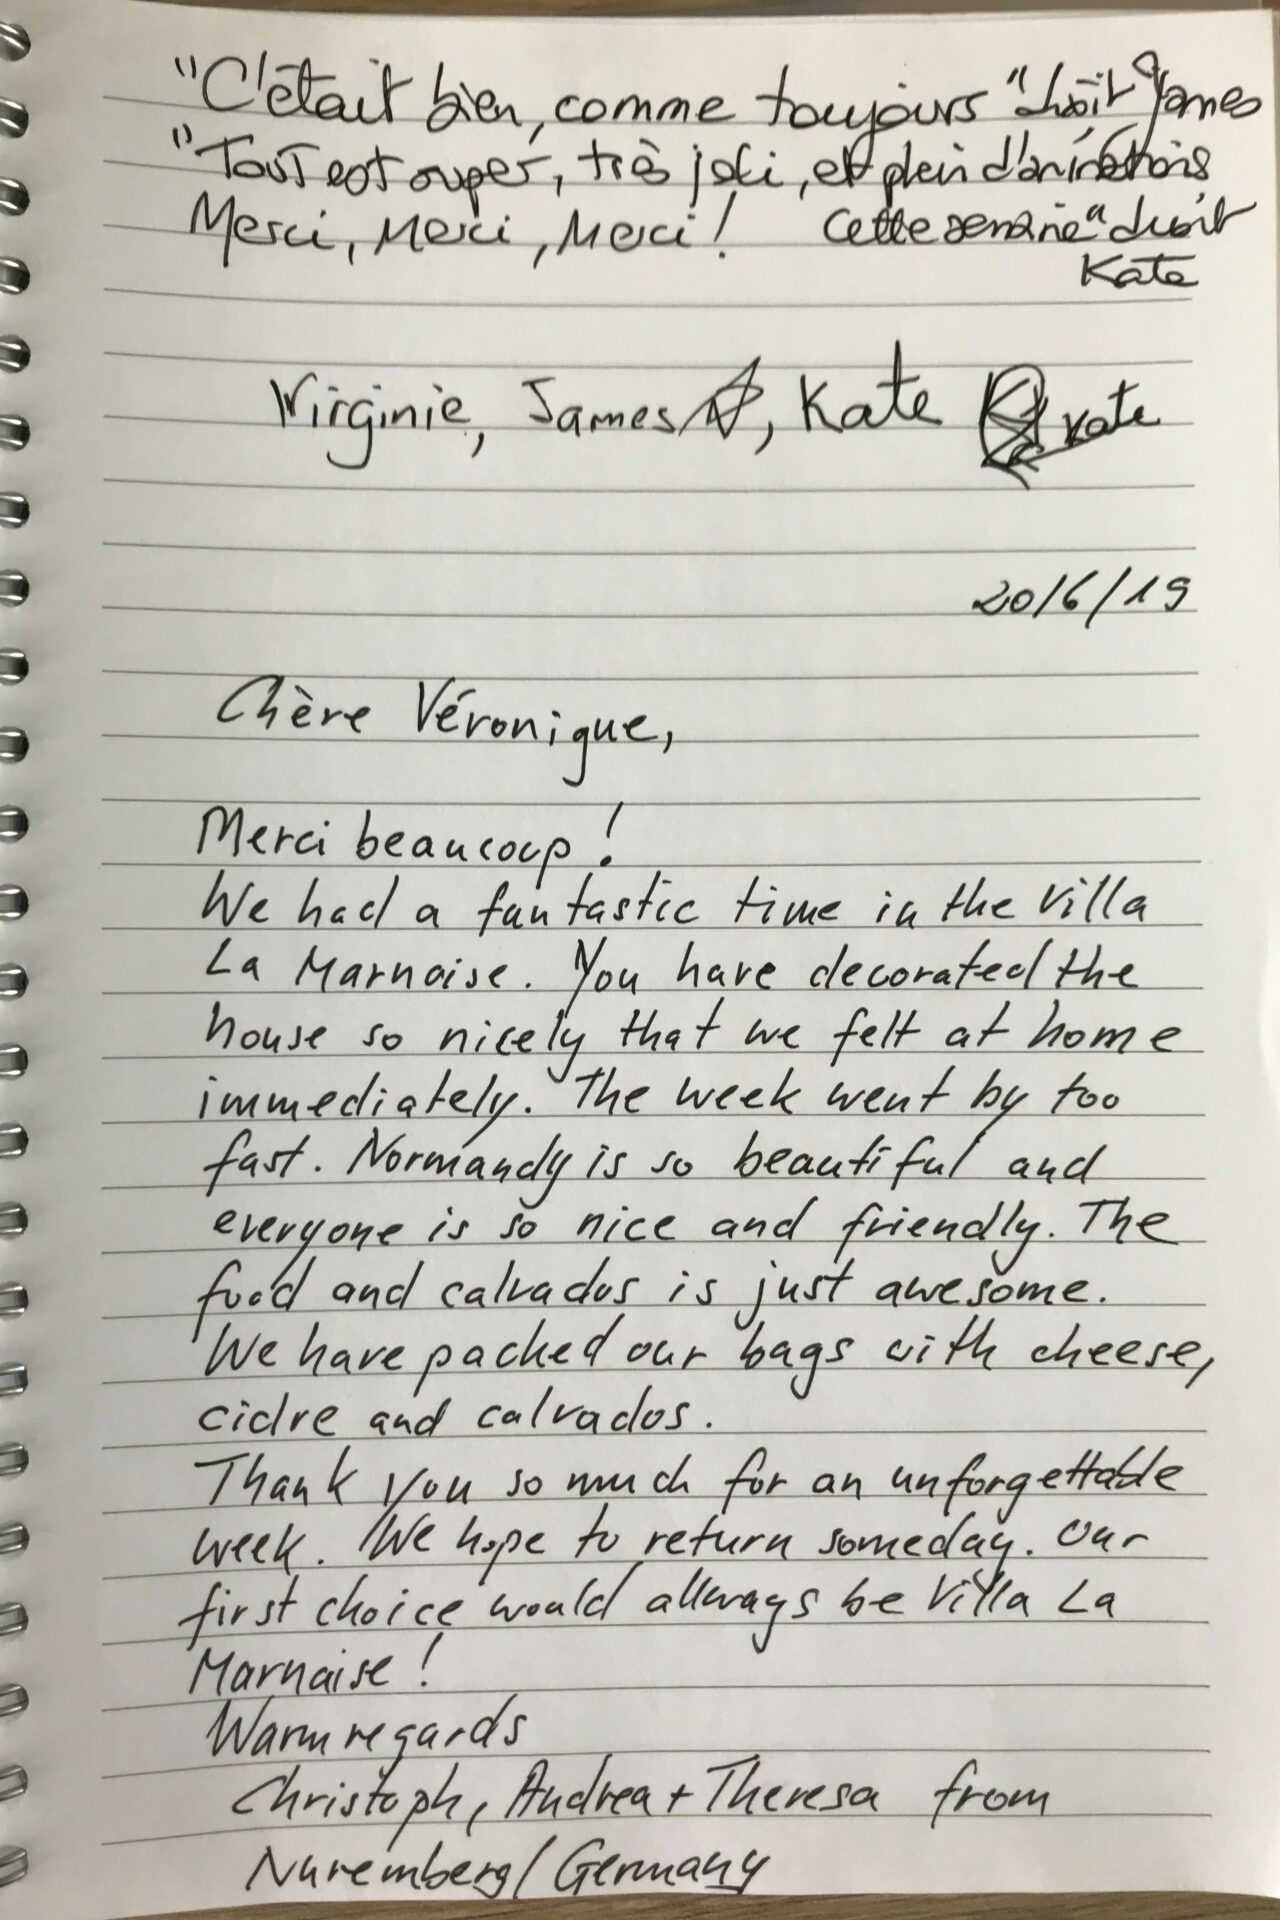 "C'était bien, comme toujours" dixit James
"Tout est super, très joli, et plein d'animations
Merci, Merci, Merci! cette semaine" dixit
Kate
Virginie, James, Kate Kate
20/6/19
Chère Véronique,
Merci beaucoup!
We had a fantastic time in the Villa
La Marnaise. You have decorated the
house so nicely that we felt at home
immediately. The week went by too
fast. Normandy is so beautiful and
everyone is so nice and friendly. The
food and calvados is just awesome.
We have packed our bags with cheese,
cidre and calvados.
Thank you so much for an unforgettable
week. We hope to return someday. Our
first choice would allways be Villa La
Marnaise!
Warm regards
Christoph, Andrea + Theresa from
Nuremberg/Germany